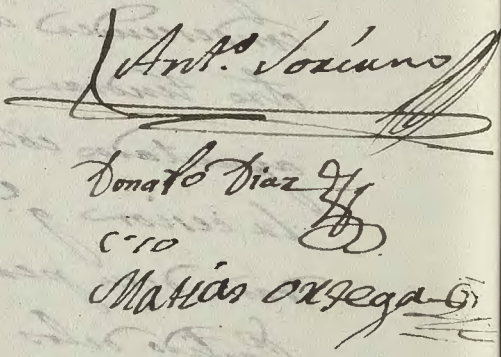 Ant.º Soriano
Donato Diaz
Matias Ortega